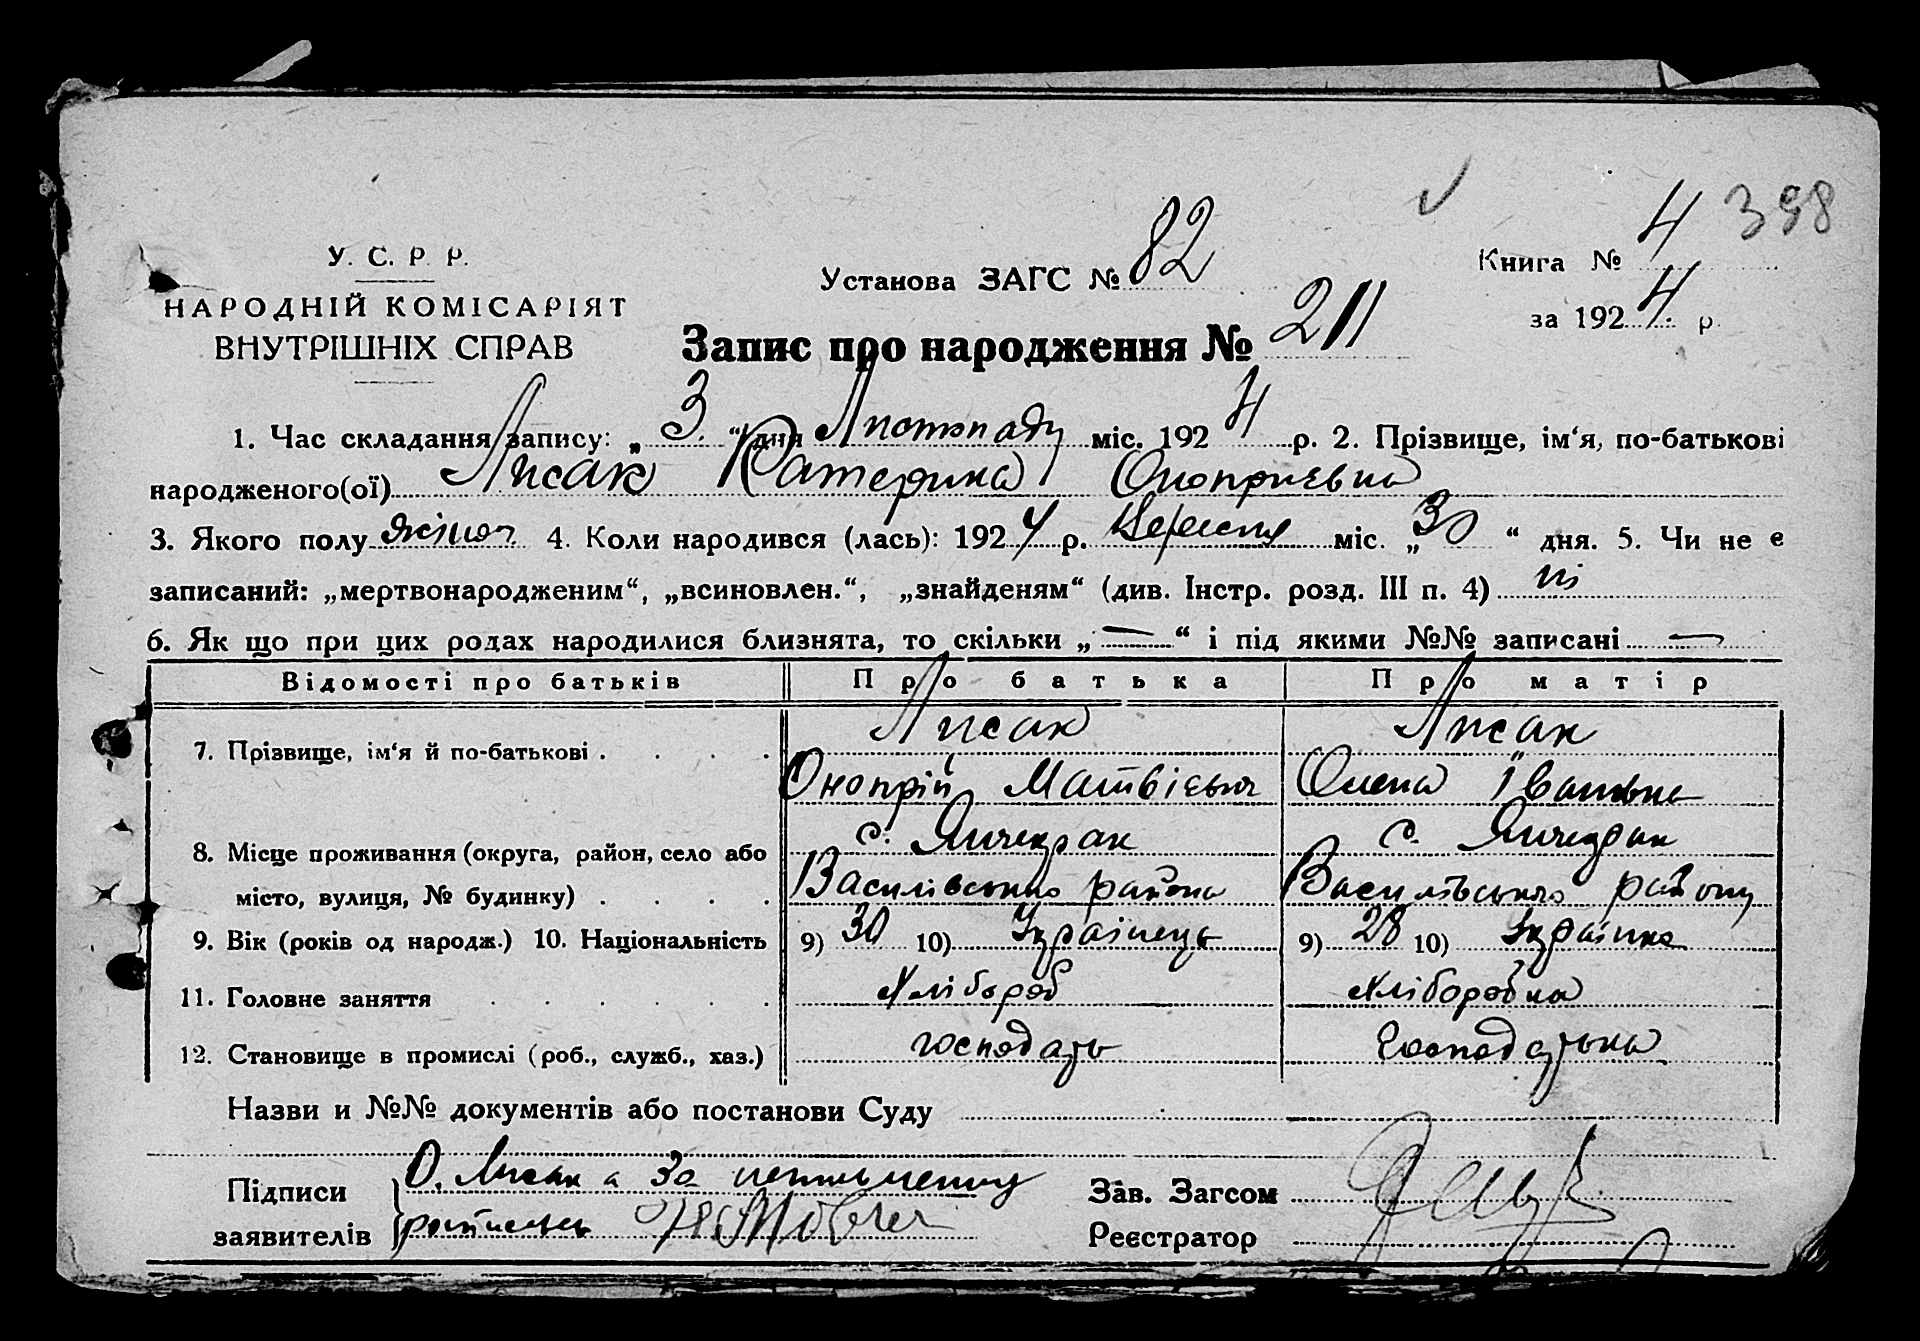 398
У. С. Р. Р.
НАРОДНІЙ КОМІСАРІЯТ
ВНУТРІШНІХ СПРАВ
Установа ЗАГС № 82
Книга № 4
за 1924 р.
Запис про народження № 211
1. Час складання запису: „3“ дня Листопаду міс. 1924 р. 2. Прізвище, ім‘я, по-батькові
народженого(ої) Лисак Катерина Оноприєвна
3. Якого полу жіноч. 4. Коли народився (лась): 1924 р. Вересня міс. „30“ дня. 5. Чи не є
записаний: „мертвонародженим“, „всиновлен.“, „знайденям“ (див. Інстр. розд. III п. 4) ні
6. Як що при цих родах народилися близнята, то скільки „—“ і під якими №№ записані —
Відомості про батьків Про батька Про матір
7. Прізвище, ім‘я й по-батькові . . . . Лисак Лисак
Онопрій Матвієвич Олена Івановна
8. Місце проживання (округа, район, село або с. Янчекрак с. Янчекрак
місто, вулиця, № будинку) . . . . Василівського району Василівського району
9. Вік (років од народж.) 10. Національність 9) 30 10) Українець 9) 28 10) Українка
11. Головне заняття . . . . . . Хлібороб Хліборобка
12. Становище в промислі (роб., служб., хаз.) господарь господарька
Назви и №№ документів або постанови Суду
Підписи О. Лисак а за неписьменну
заявителів
Зав. Загсом
Реєстратор